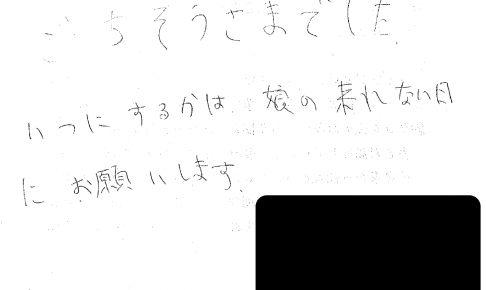 ごちそうさまでした。
いつにするかは、娘の来れない日
にお願いします。